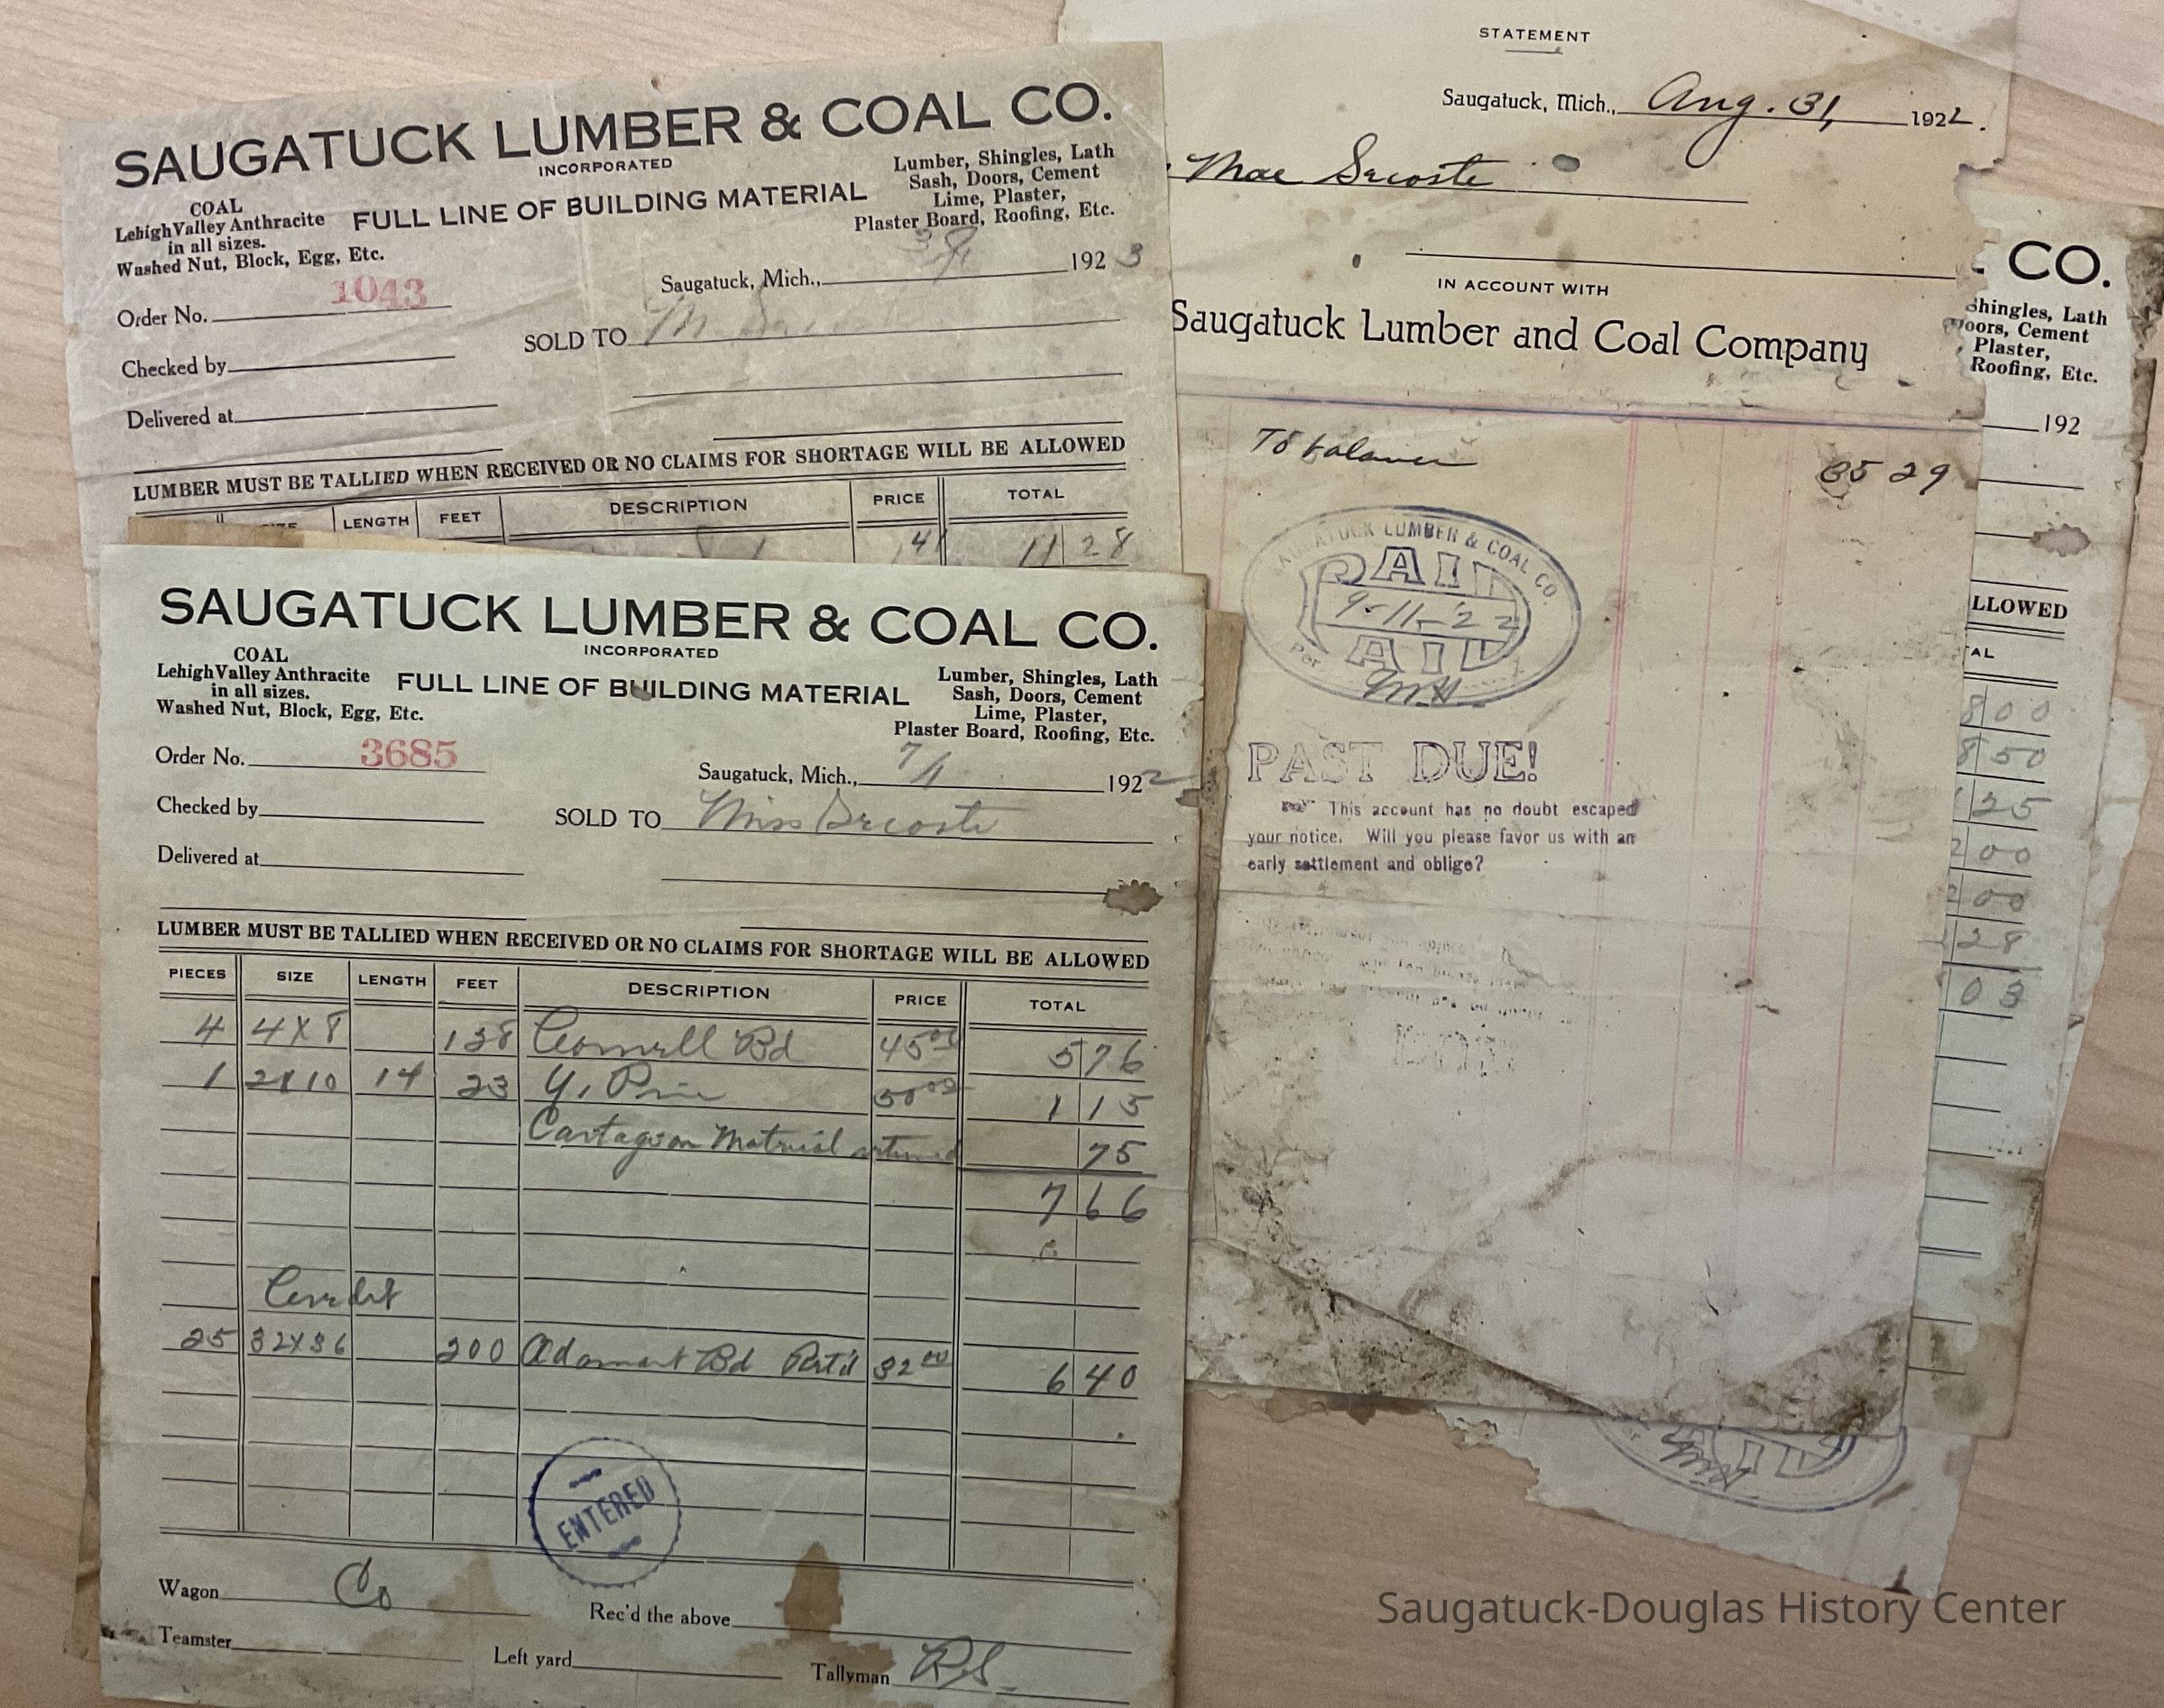 SAUGATUCK LUMBER & COAL CO.
INCORPORATED
COAL
Lehigh Valley Anthracite
in all sizes.
Washed Nut, Block, Egg, Etc.
FULL LINE OF BUILDING MATERIAL
Lumber, Shingles, Lath
Sash, Doors, Cement
Lime, Plaster,
Plaster Board, Roofing, Etc.
Order No. 1043
Saugatuck, Mich., 1923
Checked by
SOLD TO M.
Delivered at
LUMBER MUST BE TALLIED WHEN RECEIVED OR NO CLAIMS FOR SHORTAGE WILL BE ALLOWED
LENGTH FEET DESCRIPTION PRICE TOTAL
41 11 28
SAUGATUCK LUMBER & COAL CO.
INCORPORATED
COAL
Lehigh Valley Anthracite
in all sizes.
Washed Nut, Block, Egg, Etc.
FULL LINE OF BUILDING MATERIAL
Lumber, Shingles, Lath
Sash, Doors, Cement
Lime, Plaster,
Plaster Board, Roofing, Etc.
Order No. 3685
Saugatuck, Mich., 7/1 1922
Checked by
SOLD TO Miss
Delivered at
LUMBER MUST BE TALLIED WHEN RECEIVED OR NO CLAIMS FOR SHORTAGE WILL BE ALLOWED
PIECES SIZE LENGTH FEET DESCRIPTION PRICE TOTAL
4 4X8 128 Bd 45 00 5 76
1 2X10 14 23 Y. Pine 50 00 1 15
Cartage on Material returned 75
7 66
Credit
25 32X36 200 Adamant Bd Ret'd 32 00 6 40
ENTERED
Wagon Co
Rec'd the above
Teamster
Left yard
Tallyman
STATEMENT
Saugatuck, Mich., Aug. 31, 1922.
Mae
IN ACCOUNT WITH
Saugatuck Lumber and Coal Company
To balance 35 29
SAUGATUCK LUMBER & COAL CO.
PAID
9-11-22
PAID
Per
PAST DUE!
This account has no doubt escaped
your notice. Will you please favor us with an
early settlement and oblige?
CO.
Shingles, Lath
Doors, Cement
Plaster,
Roofing, Etc.
192
LLOWED
AL
8 00
8 50
25
2 00
2 00
28
03
Saugatuck-Douglas History Center